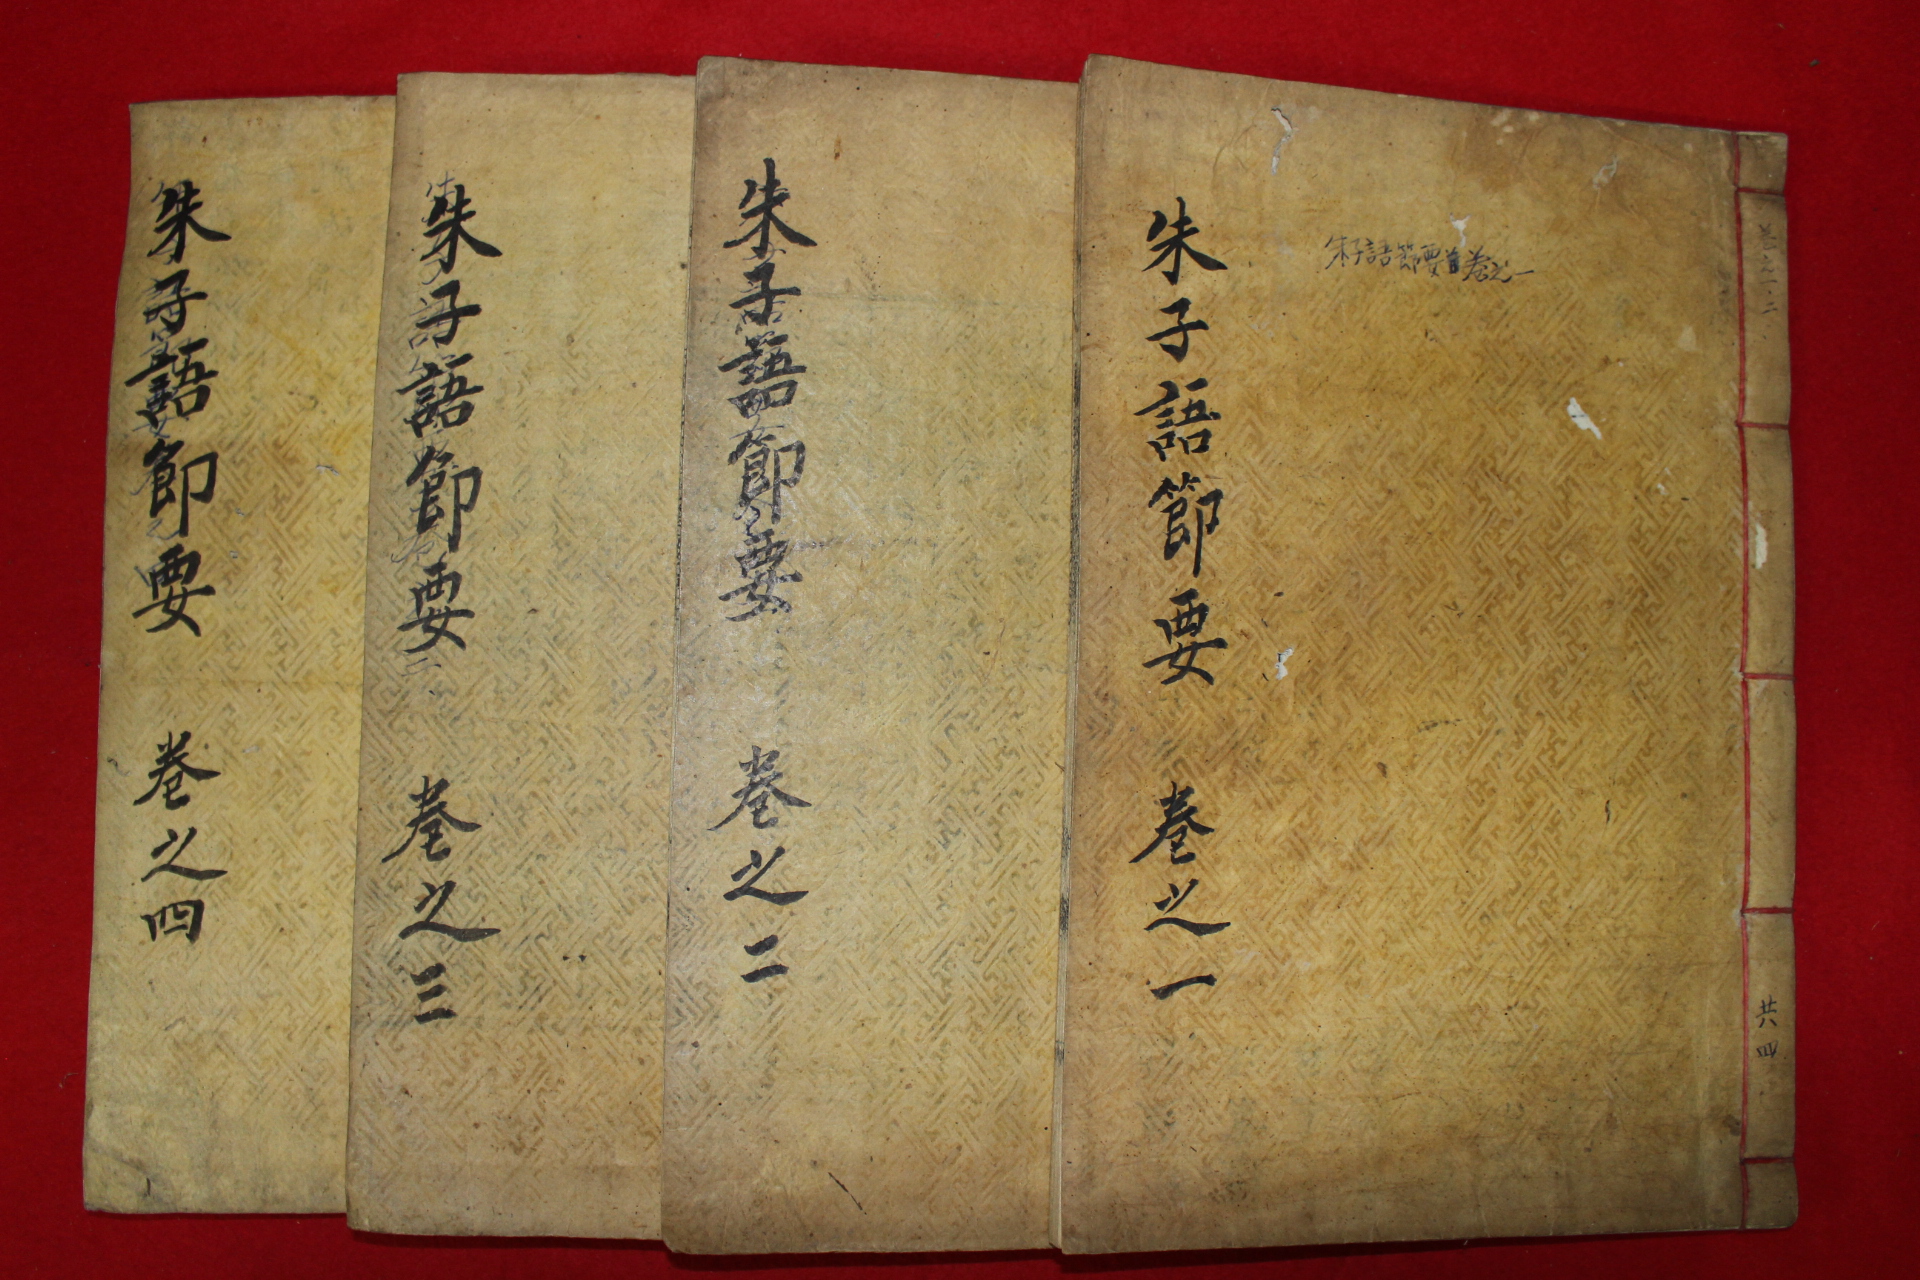 朱子語節要 卷之一
朱子語節要 卷之一
共四
朱子語節要 卷之二
朱子語節要 卷之三
朱子語節要 卷之四